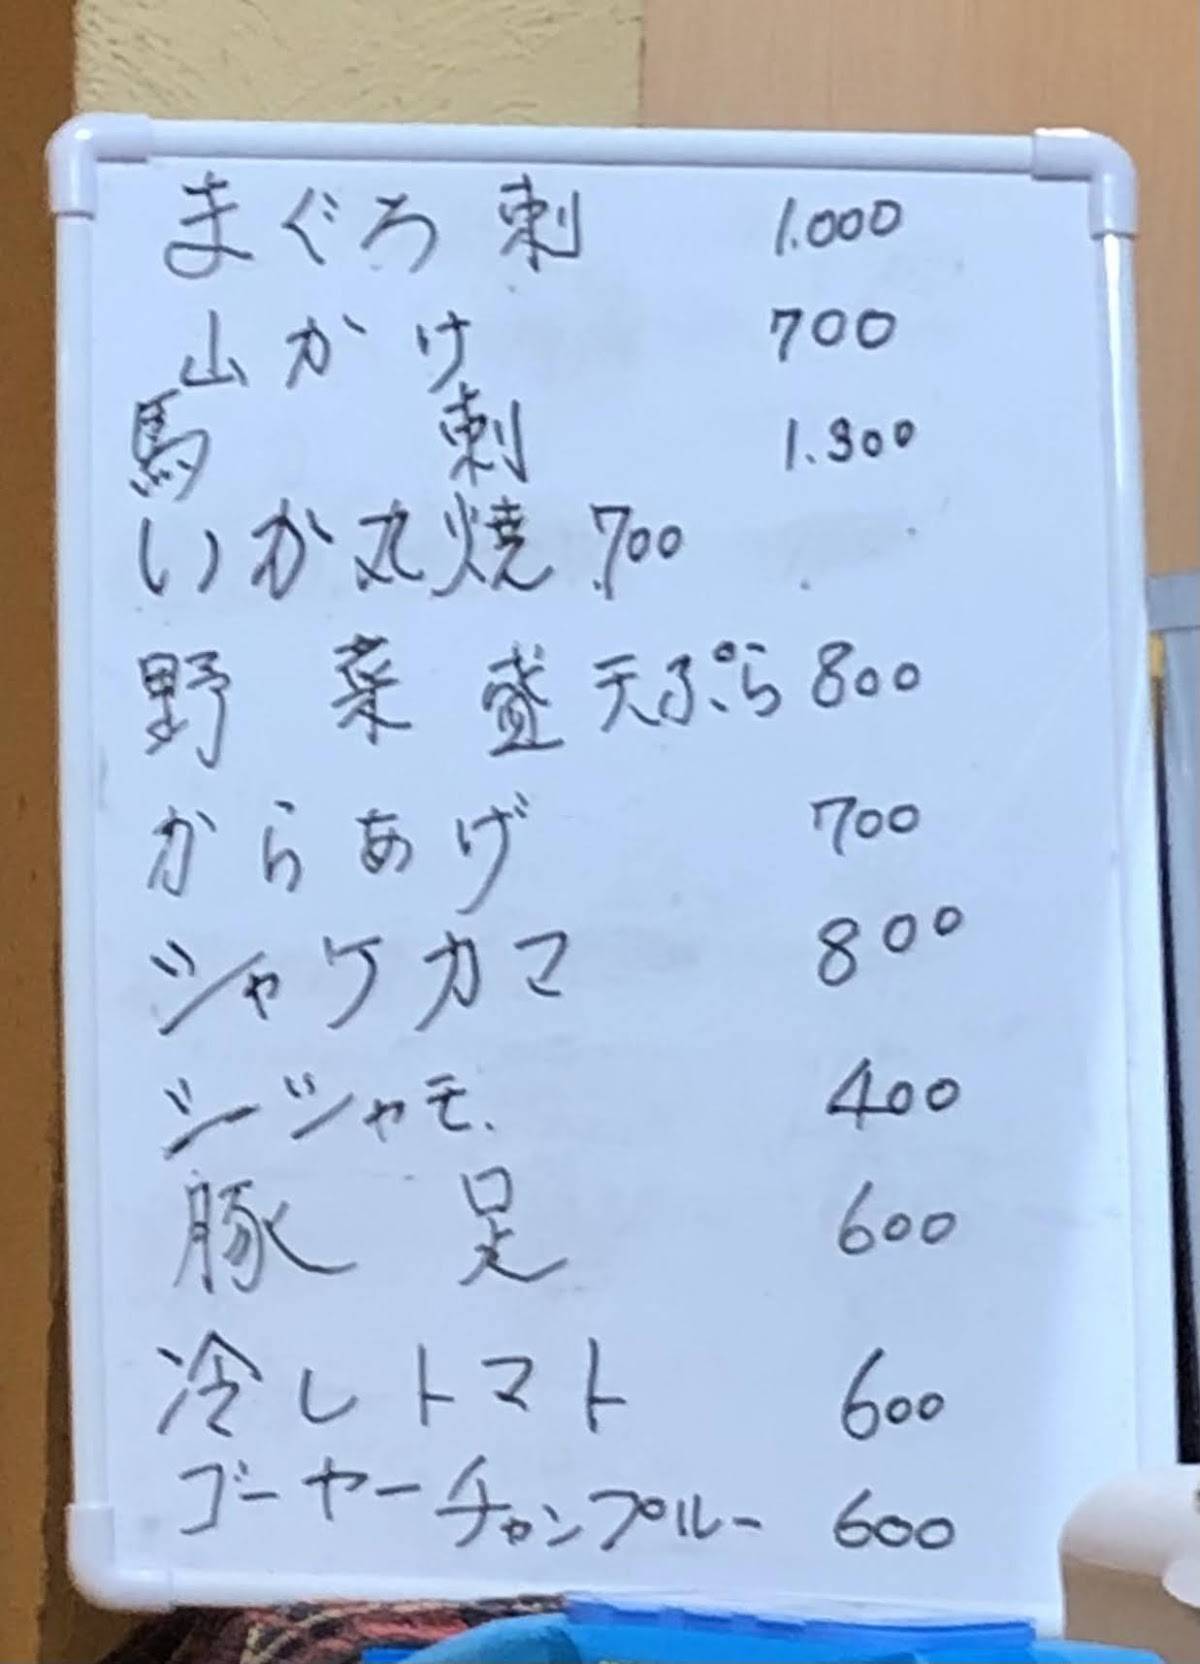 まぐろ刺 1.000
山かけ 700
馬刺 1.300
いか丸焼 700
野菜盛天ぷら 800
からあげ 700
シャケカマ 800
シーシャモ 400
豚足 600
冷しトマト 600
ゴーヤーチャンプルー 600